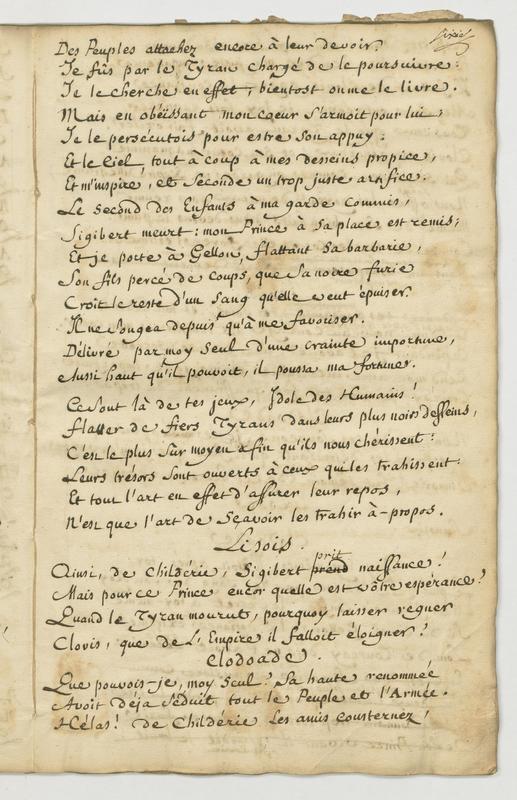 Des Peuples attachez encore à leur devoir.
Je fûs par le Tyran chargé de le poursuivre:
Je le cherche en effet, bientost on me le livre.
Mais en obéissant mon cœur s'armoit pour lui,
Je le persécutois pour estre son appuy:
Et le Ciel, tout à coup à mes desseins propice,
Et m'inspire, et seconde un trop juste artifice.
Le second des Enfants à ma garde commis,
Sigibert meurt: mon Prince à sa place est remis;
Et je porte à Gellon, flattant sa barbarie,
Son fils percé de coups, que sa noire furie
Croit le reste d'un sang qu'elle veut épuiser.
Il ne songea depuis qu'à me favoriser.
Délivré par moy seul d'une crainte importune,
Aussi haut qu'il pouvoit, il poussa ma fortune.
Ce sont là de tes jeux, Idole des Humains!
Flatter de fiers Tyrans dans leurs plus noirs desseins,
C'est le plus sûr moyen afin qu'ils nous chérissent:
Leurs trésors sont ouverts à ceux qui les trahissent:
Et tout l'art en effet d'assurer leur repos,
N'est que l'art de sçavoir les trahir à-propos.
Lisois.
prit
Ainsi, de Childéric, Sigibert prend naissance!
Mais pour ce Prince encor quelle est vôtre espérance?
Quand le Tyran mourut, pourquoy laisser regner
Clovis, que de L'Empire il falloit éloigner?
Clodoade.
Que pouvois-je, moy seul? Sa haute renommée
Avoit déja séduit tout le Peuple et l'Armée.
Hélas! de Childéric les amis consternez,